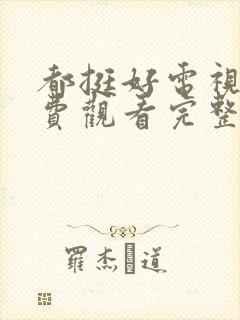 都挺好電視
費觀看完整
羅杰 道